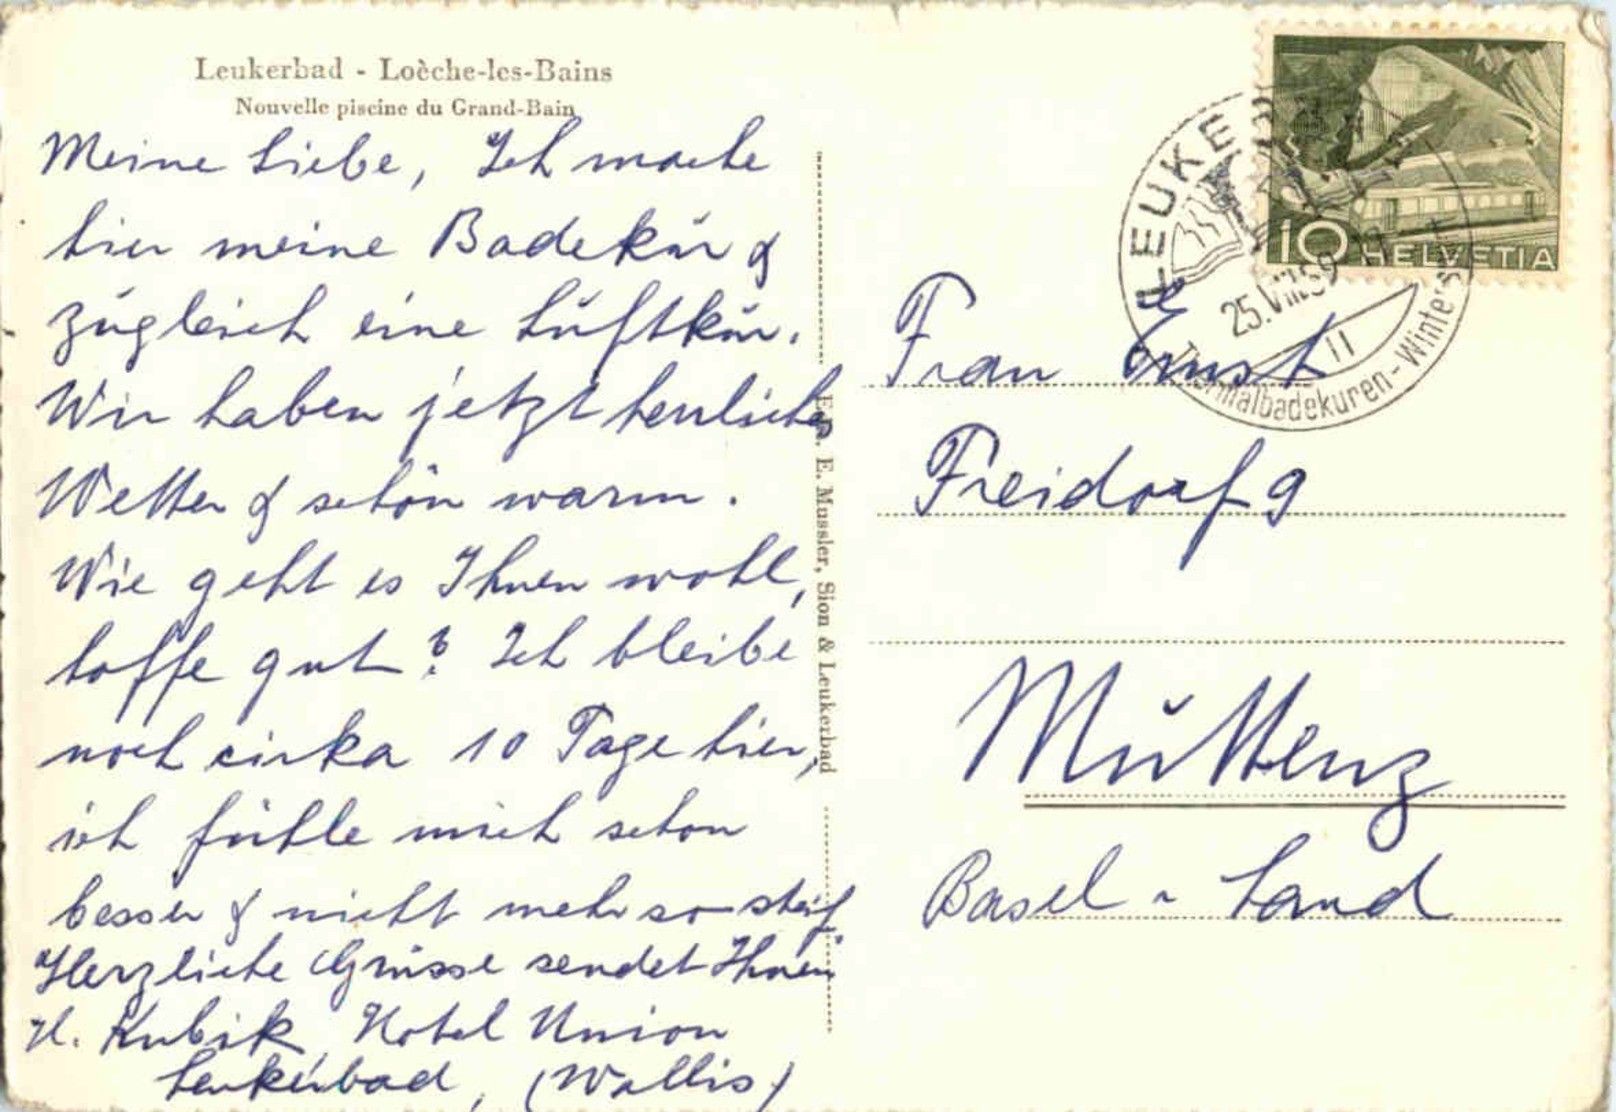 Leukerbad - Loèche-les-Bains
Nouvelle piscine du Grand-Bain
Meine Liebe, Ich mache
hier meine Badekur &
zugleich eine Luftkur.
Wir haben jetzt herrliches
Wetter & schön warm.
Wie geht es Ihnen wohl,
hoffe gut? Ich bleibe
noch cirka 10 Tage hier,
ich fühle mich schon
besser & nicht mehr so steif.
Herzliche Grüsse sendet Ihnen
H. Kubik, Hotel Union
Leukerbad, (Wallis)
Edit. E. Mussler, Sion & Leukerbad
10 HELVETIA
LEUKER
25.VIII.59
11
Thermalbadekuren-Winters
Frau Ernst
Freidorf 9
Muttenz
Basel - Land